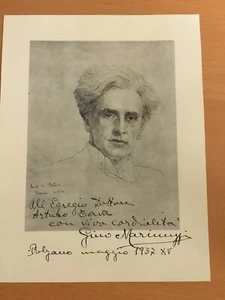 All' Egregio Dottor
Arturo
con viva cordialità
Gino Marinuzzi
Bolzano maggio 1937 XV